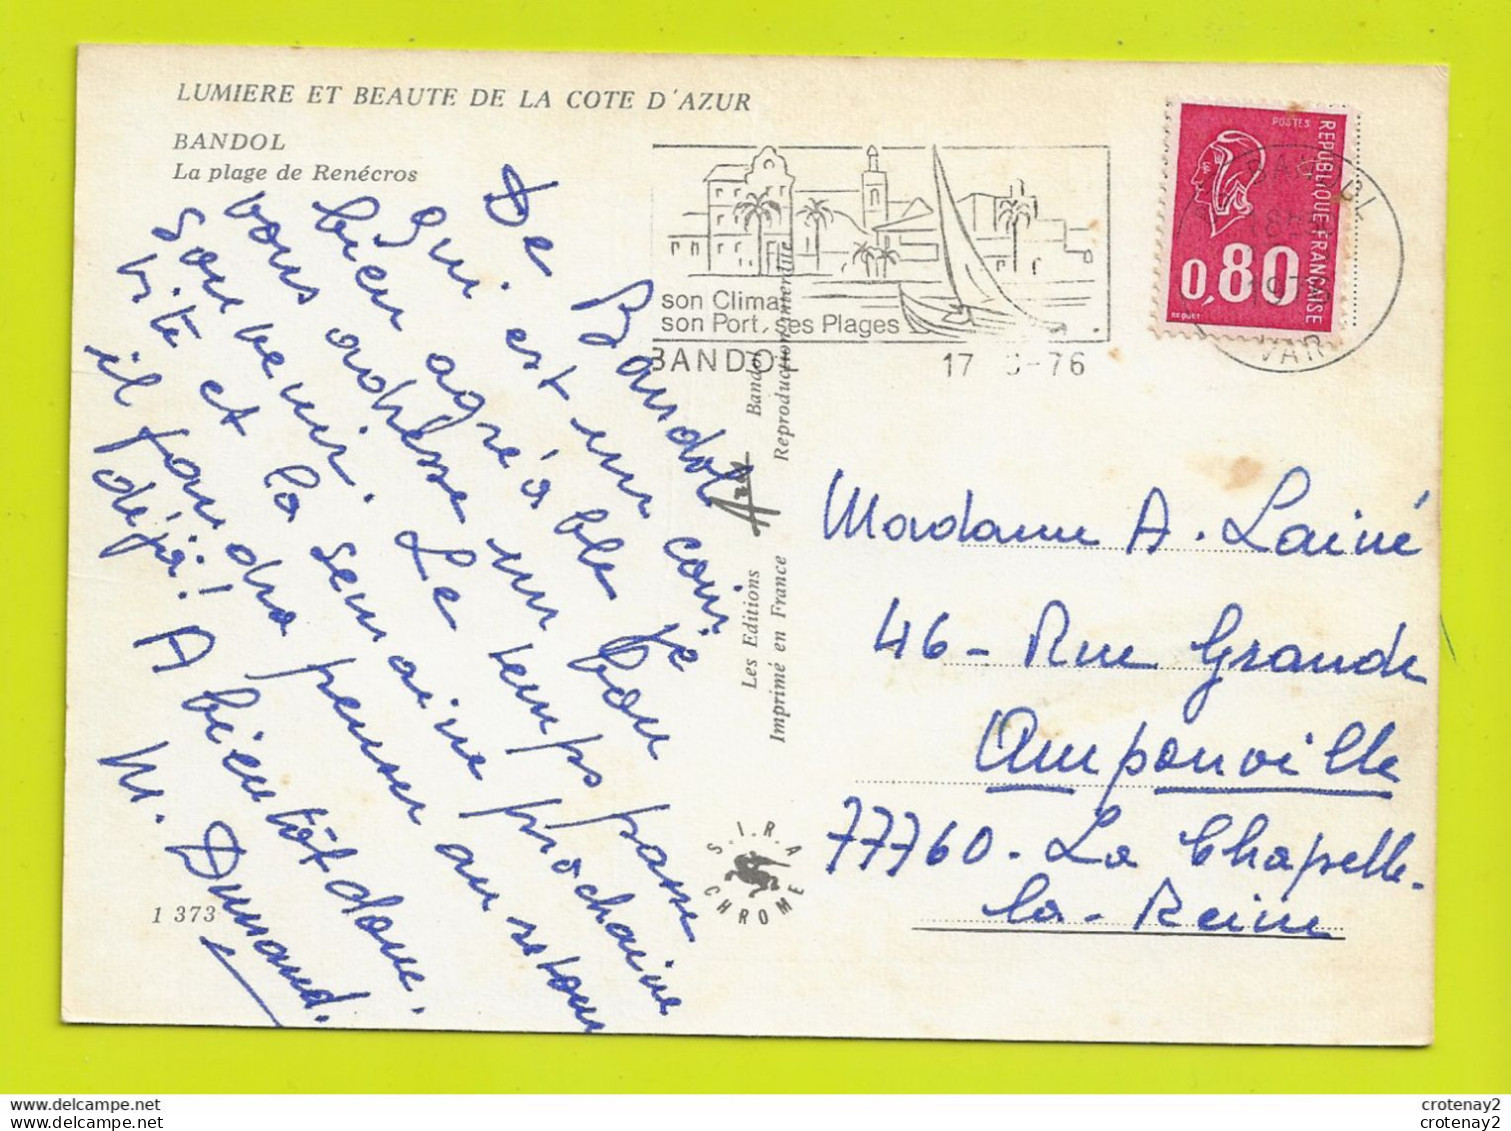 LUMIERE ET BEAUTE DE LA COTE D'AZUR
BANDOL
La plage de Renécros
De Bandol coin
qui est un je
bien agréable bon
vous adresse un
souvenir. Le temps passe
vite et la semaine prochaine
il faudra penser au retour
déjà! A bientôt donc.
M. Dumand.
1 373
Les Editions Aris Bandol
Imprimé en France Reproduction interdite
S.I.R.A
CHROME
son Climat
son Port, ses Plages
BANDOL
17 -76
BANDOL
VAR
POSTES
REPUBLIQUE FRANÇAISE
0,80
BEQUET
Madame A. Lainé
46 - Rue Grande
Amponville
77760 - La Chapelle-
la-Reine
delcampe.net
crotenay2
delcampe.net
crotenay2